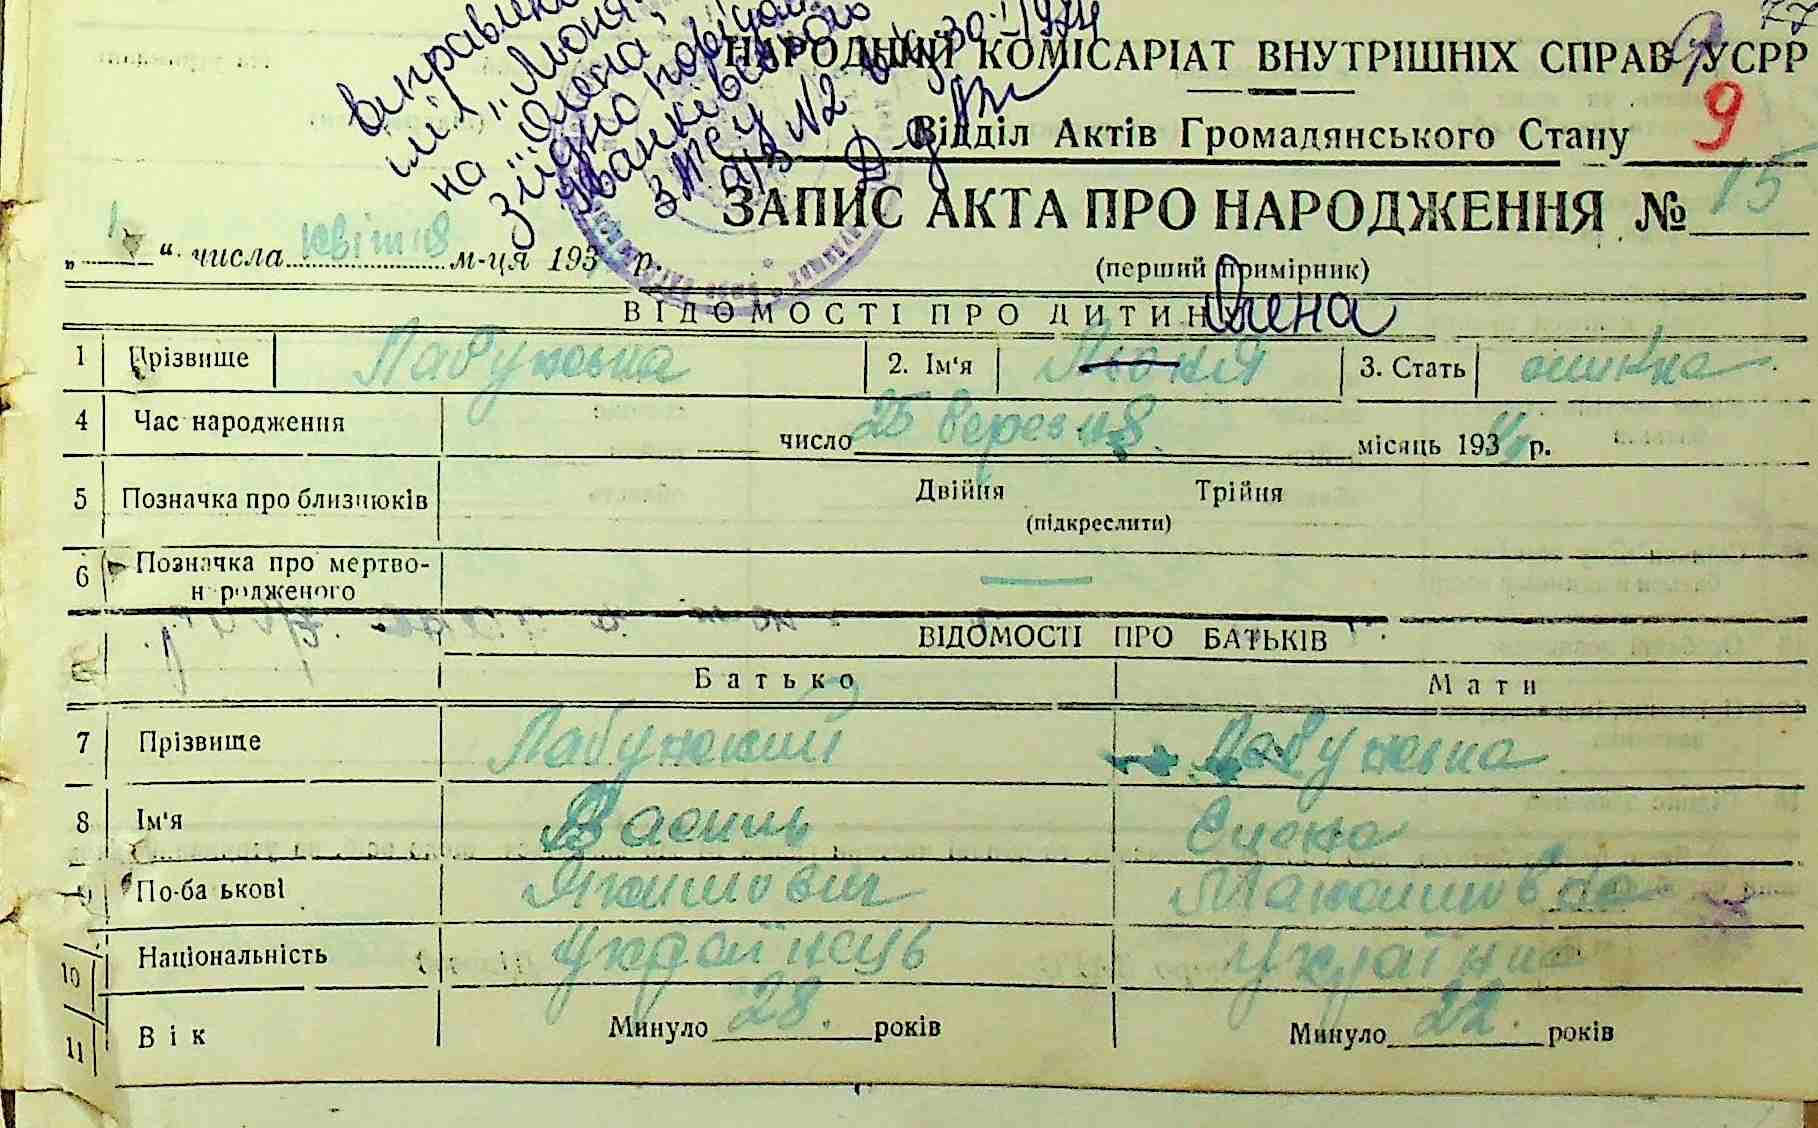 виправлено
ім'я "Люня"
на "Олена"
згідно
Іванківського
ЗАГСу
№2 від 30.I.1974
77
НАРОДНИЙ КОМІСАРІАТ ВНУТРІШНІХ СПРАВ УСРР
9
Відділ Актів Громадянського Стану
ЗАПИС АКТА ПРО НАРОДЖЕННЯ № 15
„1“ числа квітня м-ця 193 р.
(перший примірник)
ВІДОМОСТІ ПРО ДИТИНУ
Олена
1 Прізвище Лабунська 2. Ім'я Люня 3. Стать жінка
4 Час народження число 25 березня місяць 1934 р.
5 Позначка про близнюків Двійня Трійня
(підкреслити)
6 Позначка про мертво-
народженого —
ВІДОМОСТІ ПРО БАТЬКІВ
Батько Мати
7 Прізвище Лабунський Лабунська
8 Ім'я Василь Єлена
9 По-батькові Якимович Макаимовна
10 Національність Українець Українка
11 Вік Минуло 28 років Минуло 22 років